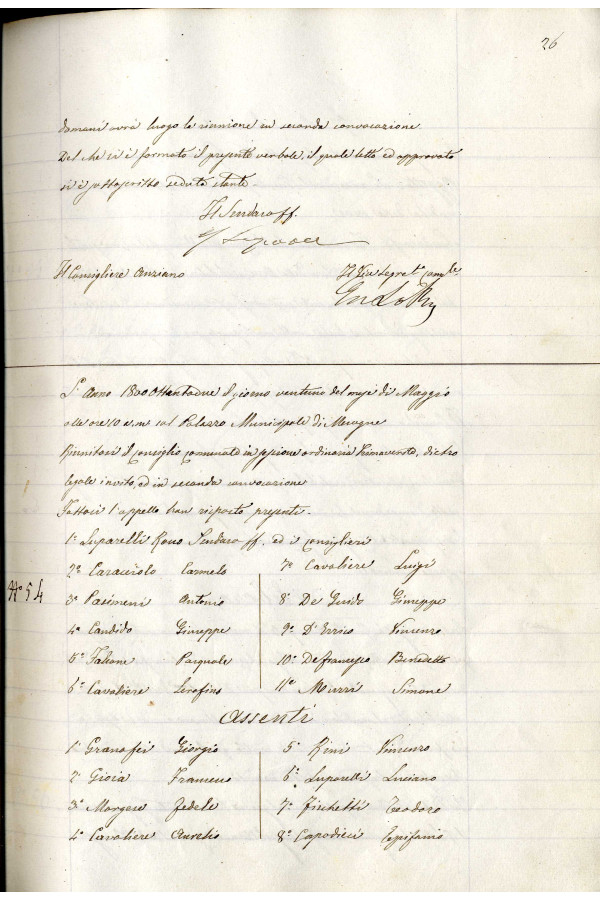 26
domani avrà luogo la riunione in seconda convocazione
Del che si è formato il presente verbale, il quale letto ed approvato
si è sottoscritto seduta stante.
Il Sindaco ff.
Il Consigliere Anziano
Il Vice Segret. Com.le
L'Anno 1800Ottantadue il giorno ventuno del mese di Maggio
alle ore 10 a.m. sul Palazzo Municipale di Mesagne
Riunitosi il Consiglio Comunale in sessione ordinaria Primaverile, dietro
legale invito, ed in seconda convocazione
Fattosi l'appello han risposto presenti.
1° Luparelli Sindaco ff. ed i Consiglieri
N° 54
2° Caracciolo Carmelo
3° Pasimeni Antonio
4° Candido Giuseppe
5° Falcone Pasquale
6° Cavaliere Serafino
7° Cavaliere Luigi
8° De Guido Giuseppe
9° D'Errico Vincenzo
10° Defrancesco Benedetto
11° Murri Simone
Assenti
1° Granafei Giorgio
2° Gioia Francesco
3° Morgese Fedele
4° Cavaliere Aurelio
5° Rini Vincenzo
6° Luparelli Luciano
7° Fischetti Teodoro
8° Capodieci Epifanio